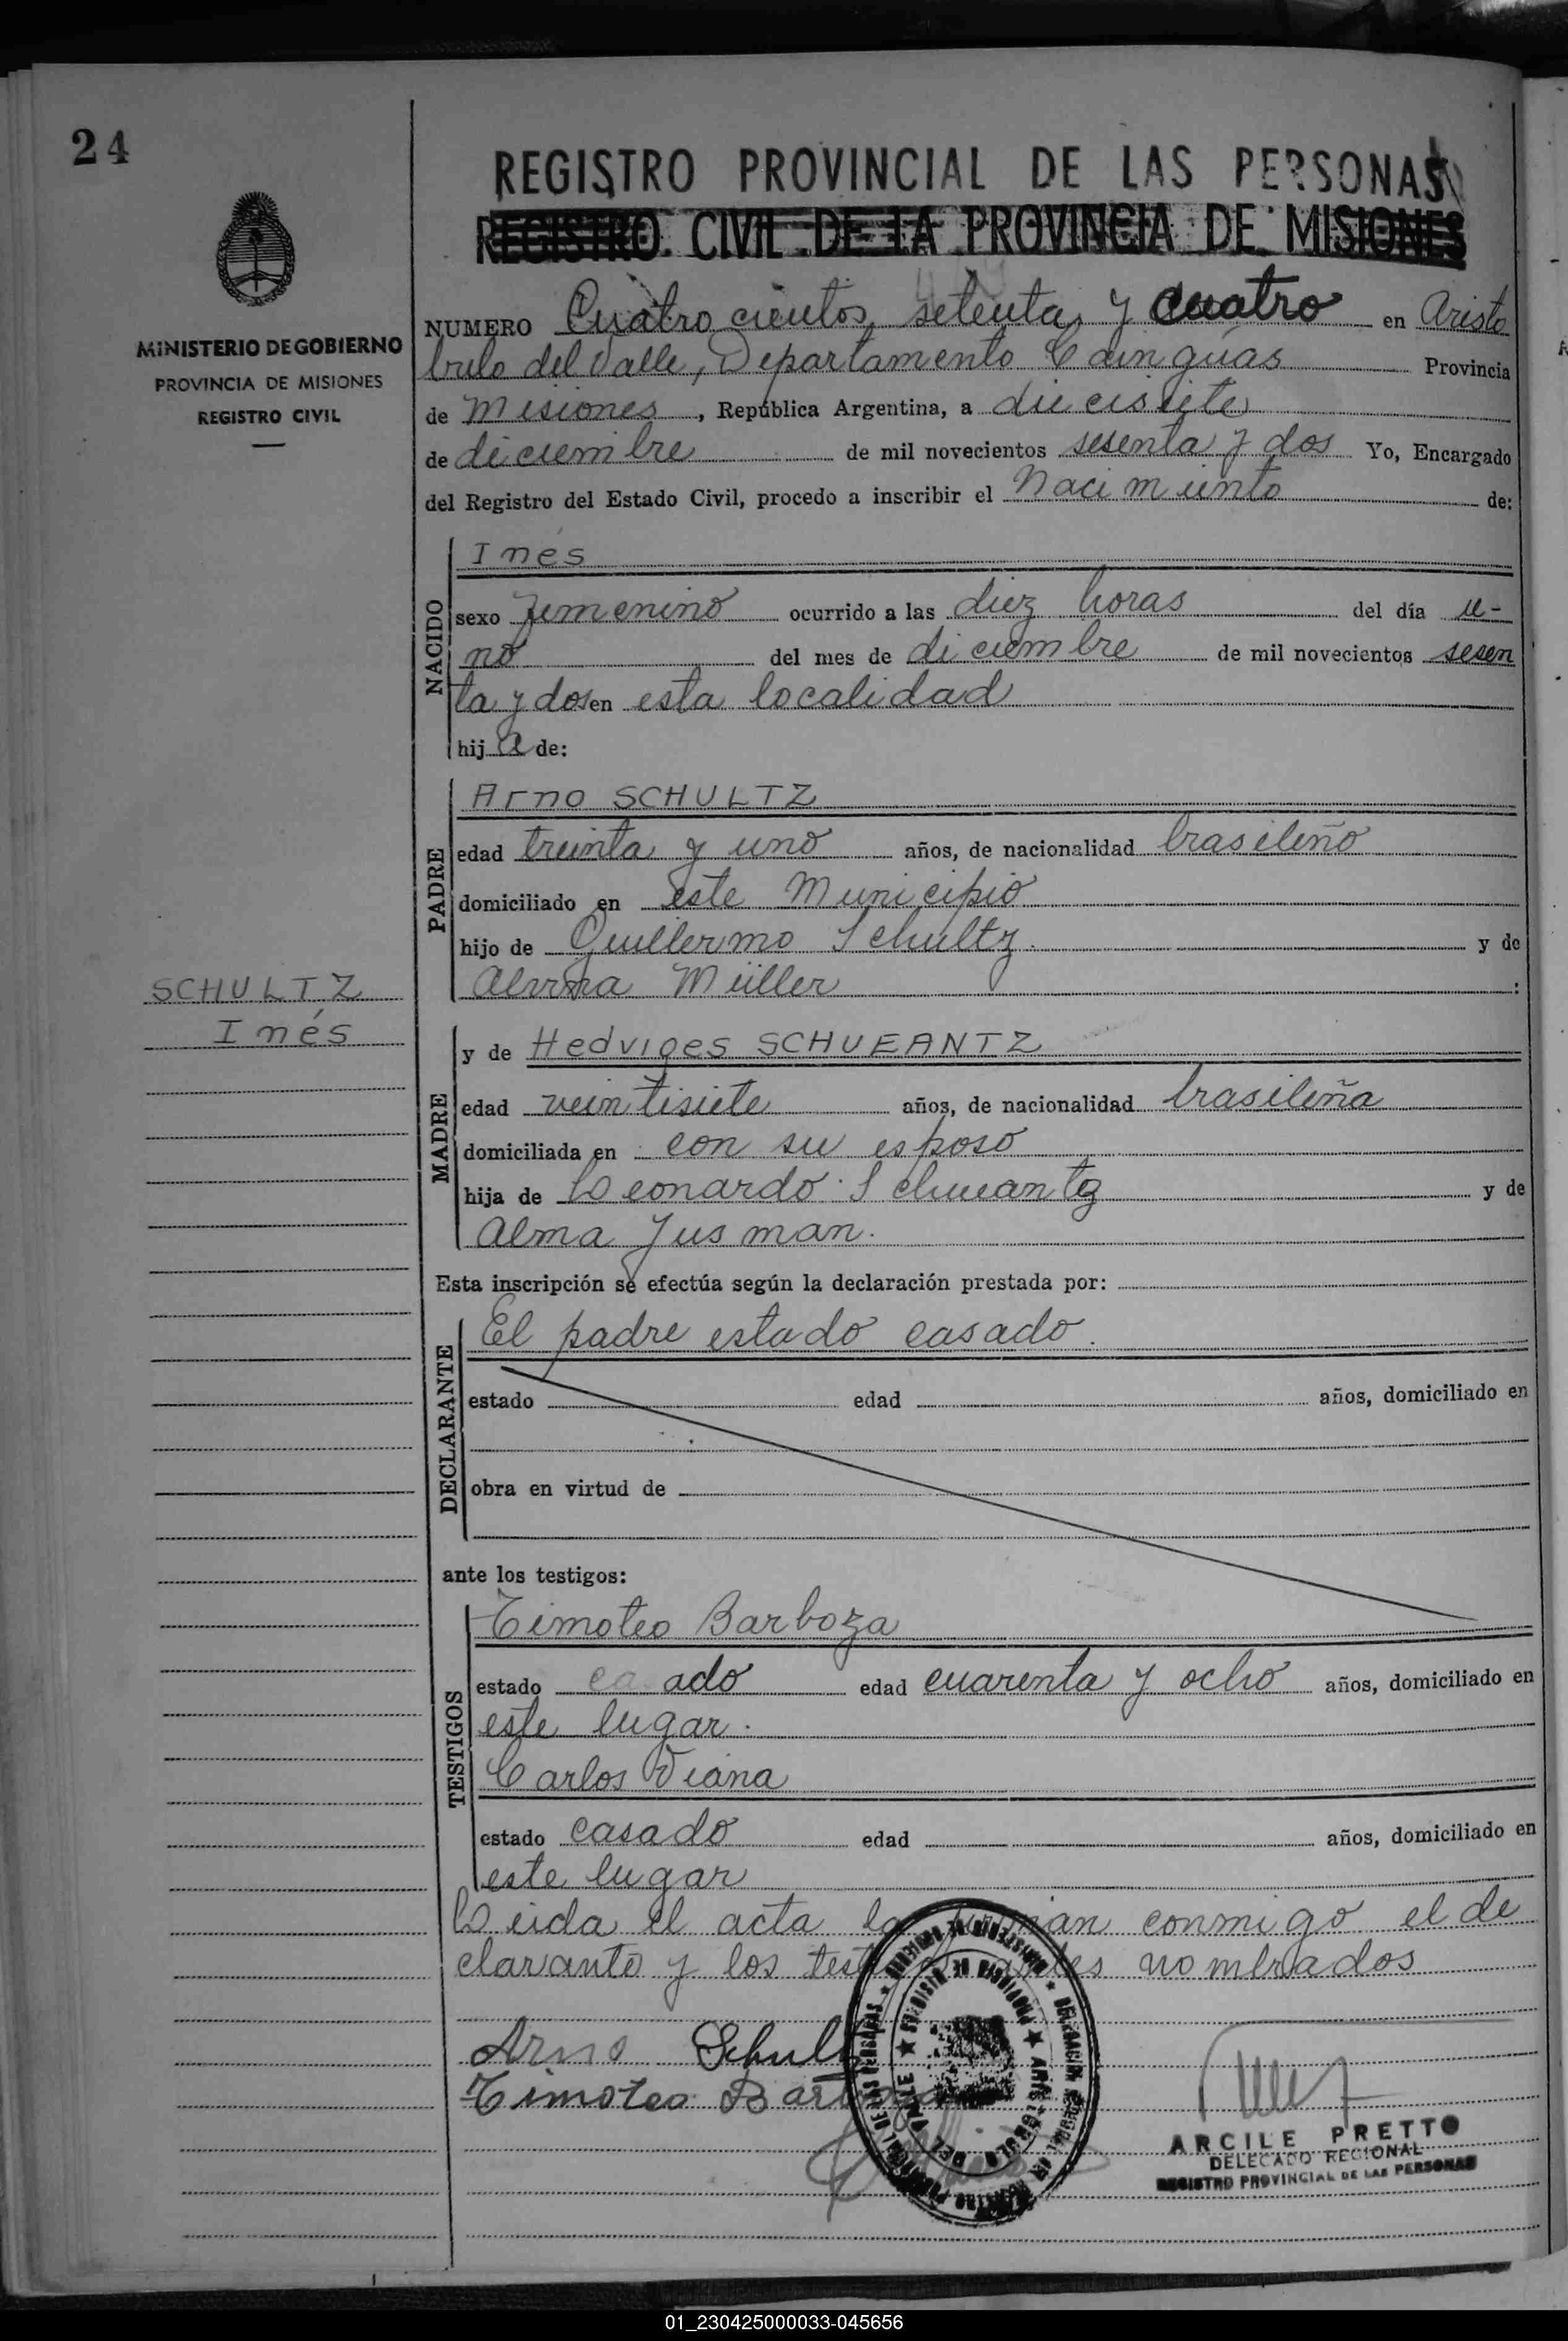 24
MINISTERIO DE GOBIERNO
PROVINCIA DE MISIONES
REGISTRO CIVIL
REGISTRO PROVINCIAL DE LAS PERSONAS
REGISTRO CIVIL DE LA PROVINCIA DE MISIONES
NUMERO Cuatro cientos setenta y cuatro en Aristo
bulo del Valle, Departamento Cainguás Provincia
de Misiones, República Argentina, a diecisiete
de diciembre de mil novecientos sesenta y dos Yo, Encargado
del Registro del Estado Civil, procedo a inscribir el Nacimiento de:
NACIDO
Inés
sexo femenino ocurrido a las diez horas del día u-
no del mes de diciembre de mil novecientos sesen
ta y dos en esta localidad
hij a de:
PADRE
Arno SCHULTZ
edad treinta y uno años, de nacionalidad brasileño
domiciliado en este Municipio
hijo de Guillermo Schultz y de
Müller :
SCHULTZ
Inés
MADRE
y de Hedviges SCHUEANTZ
edad veintisiete años, de nacionalidad brasileña
domiciliada en con su esposo
hija de Leonardo Schueantz y de
Alma Jusman.
Esta inscripción se efectúa según la declaración prestada por:
DECLARANTE
El padre estado casado.
estado edad años, domiciliado en
obra en virtud de
ante los testigos:
TESTIGOS
Timoteo Barboza
estado casado edad cuarenta y ocho años, domiciliado en
este lugar.
Carlos Viana
estado casado edad años, domiciliado en
este lugar
Leida el acta la firman conmigo el de
clarante y los testigos antes nombrados
Arno Schultz
Timoteo Barboza
ARISTOBULO DEL VALLE
ARCILE PRETTO
DELEGADO REGIONAL
REGISTRO PROVINCIAL DE LAS PERSONAS
01_230425000033-045656